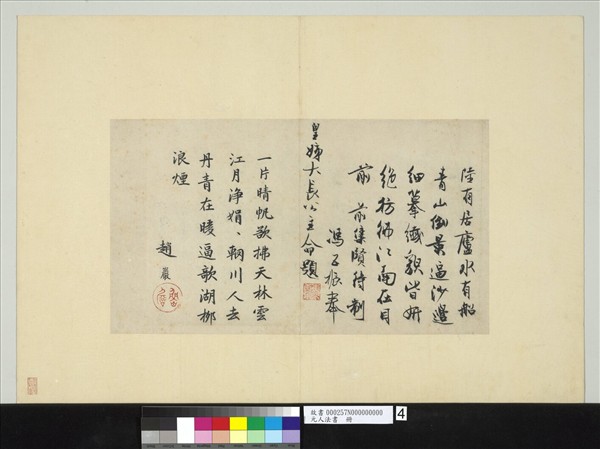 陸有居廬水有船
青山倒景逼沙邊
細摹纖貌皆妍
絕彷彿江南在目
前 前集賢待制
馮子振奉
皇姊大長公主命題
一片晴帆欲拂天林雲
江月淨娟〻輞川人去
丹青在暖逼歌湖柳
浪煙
趙巖
故書 000257N000000000
元人法書 冊
4